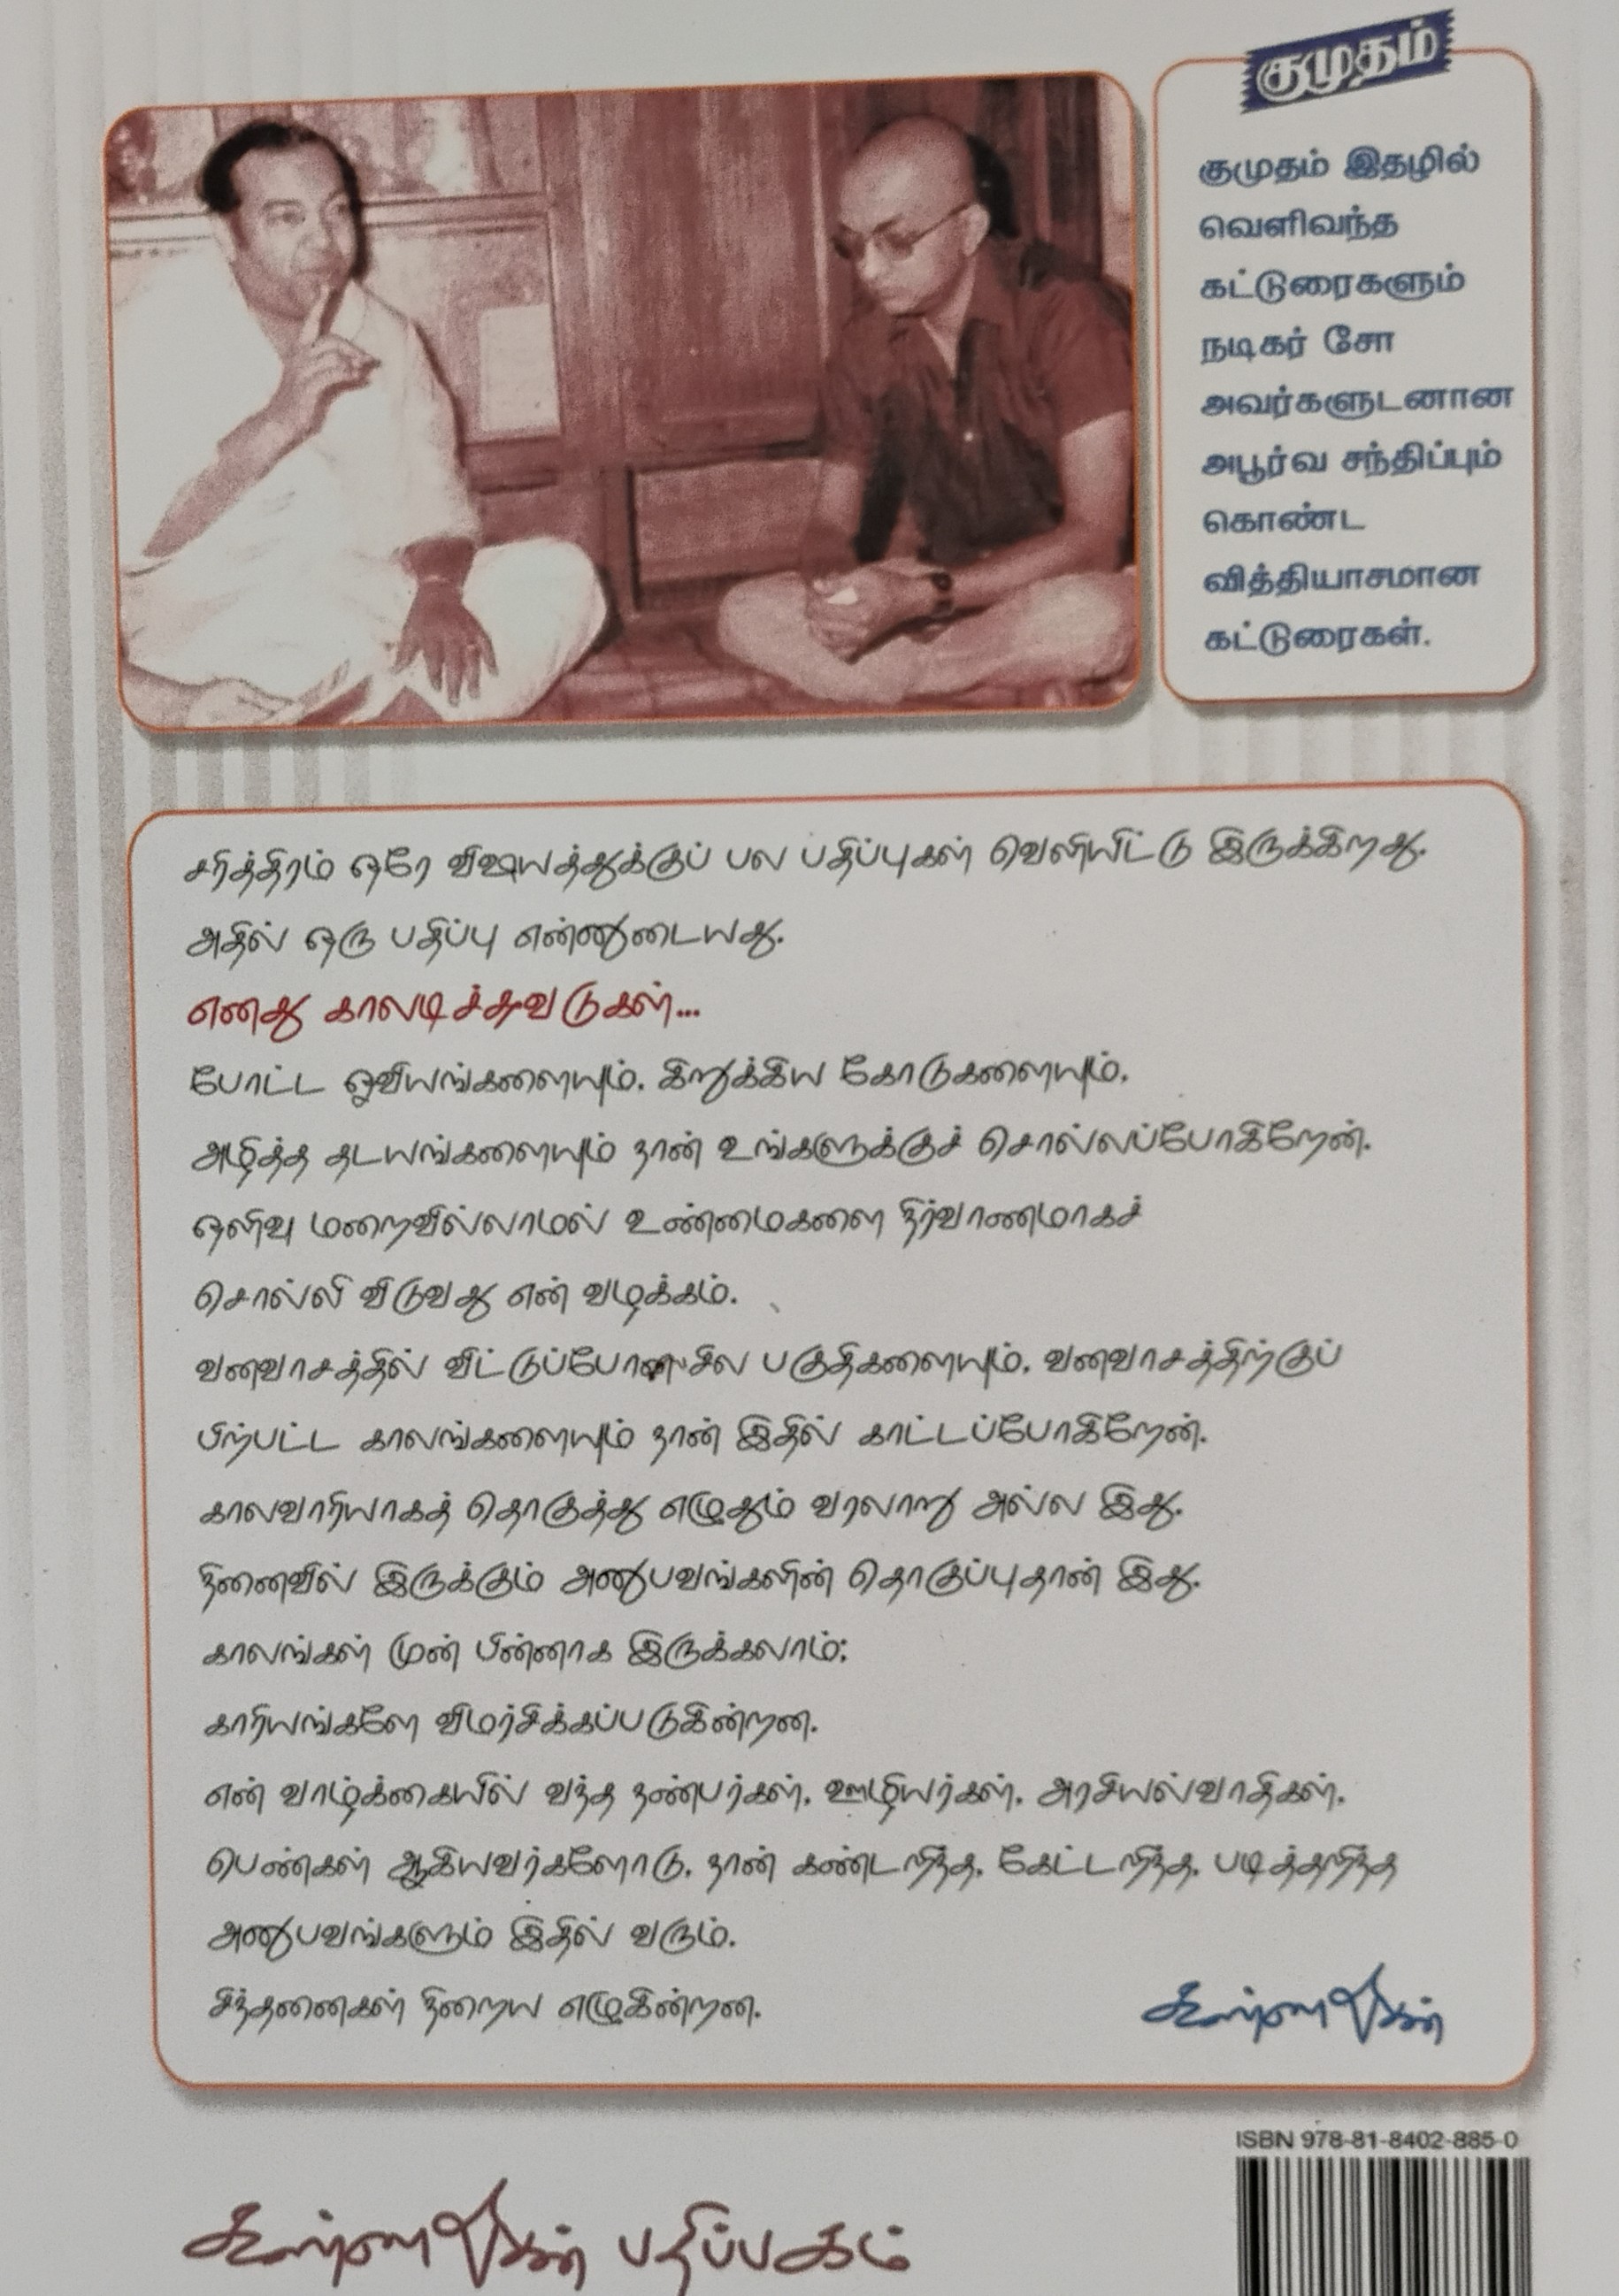 குமுதம்
குமுதம் இதழில்
வெளிவந்த
கட்டுரைகளும்
நடிகர் சோ
அவர்களுடனான
அபூர்வ சந்திப்பும்
கொண்ட
வித்தியாசமான
கட்டுரைகள்.
சரித்திரம் ஒரே விஷயத்துக்குப் பல பதிப்புகள் வெளியிட்டு இருக்கிறது.
அதில் ஒரு பதிப்பு என்னுடையது.
எனது காலடிச்சுவடுகள்...
போட்ட ஓவியங்களையும், கிறுக்கிய கோடுகளையும்,
அழித்த தடயங்களையும் நான் உங்களுக்குச் சொல்லப்போகிறேன்.
ஒளிவு மறைவில்லாமல் உண்மைகளை நிர்வாணமாகச்
சொல்லி விடுவது என் வழக்கம்.
வனவாசத்தில் விட்டுப்போன சில பகுதிகளையும், வனவாசத்திற்குப்
பிற்பட்ட காலங்களையும் நான் இதில் காட்டப்போகிறேன்.
காலவாரியாகத் தொகுத்து எழுதும் வரலாறு அல்ல இது.
நினைவில் இருக்கும் அனுபவங்களின் தொகுப்புதான் இது.
காலங்கள் முன் பின்னாக இருக்கலாம்;
காரியங்களே விமர்சிக்கப்படுகின்றன.
என் வாழ்க்கையில் வந்த நண்பர்கள், ஊழியர்கள், அரசியல்வாதிகள்,
பெண்கள் ஆகியவர்களோடு, நான் கண்டறிந்த, கேட்டறிந்த, படித்தறிந்த
அனுபவங்களும் இதில் வரும்.
சிந்தனைகள் நிறைய எழுகின்றன.
கண்ணதாசன்
ISBN 978-81-8402-885-0
கண்ணதாசன் பதிப்பகம்